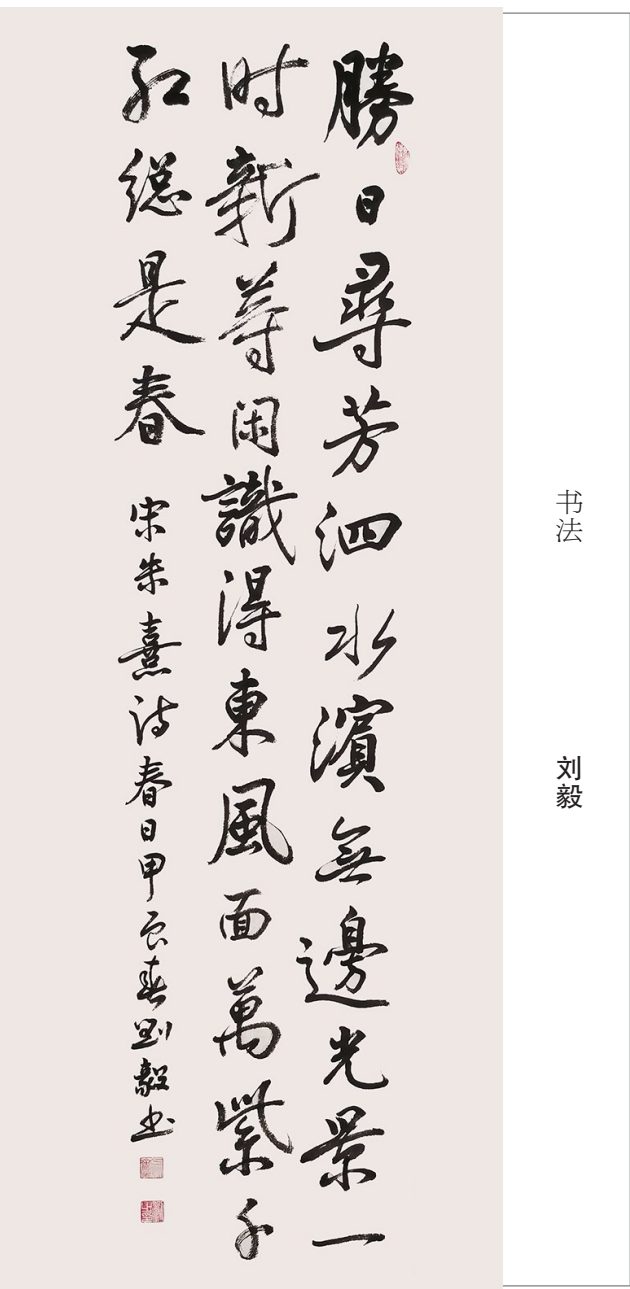 勝日尋芳泗水濱無邊光景一
时新等闲識得東風面萬紫千
紅總是春
宋朱熹诗春日甲辰春劉毅书
书法
刘毅